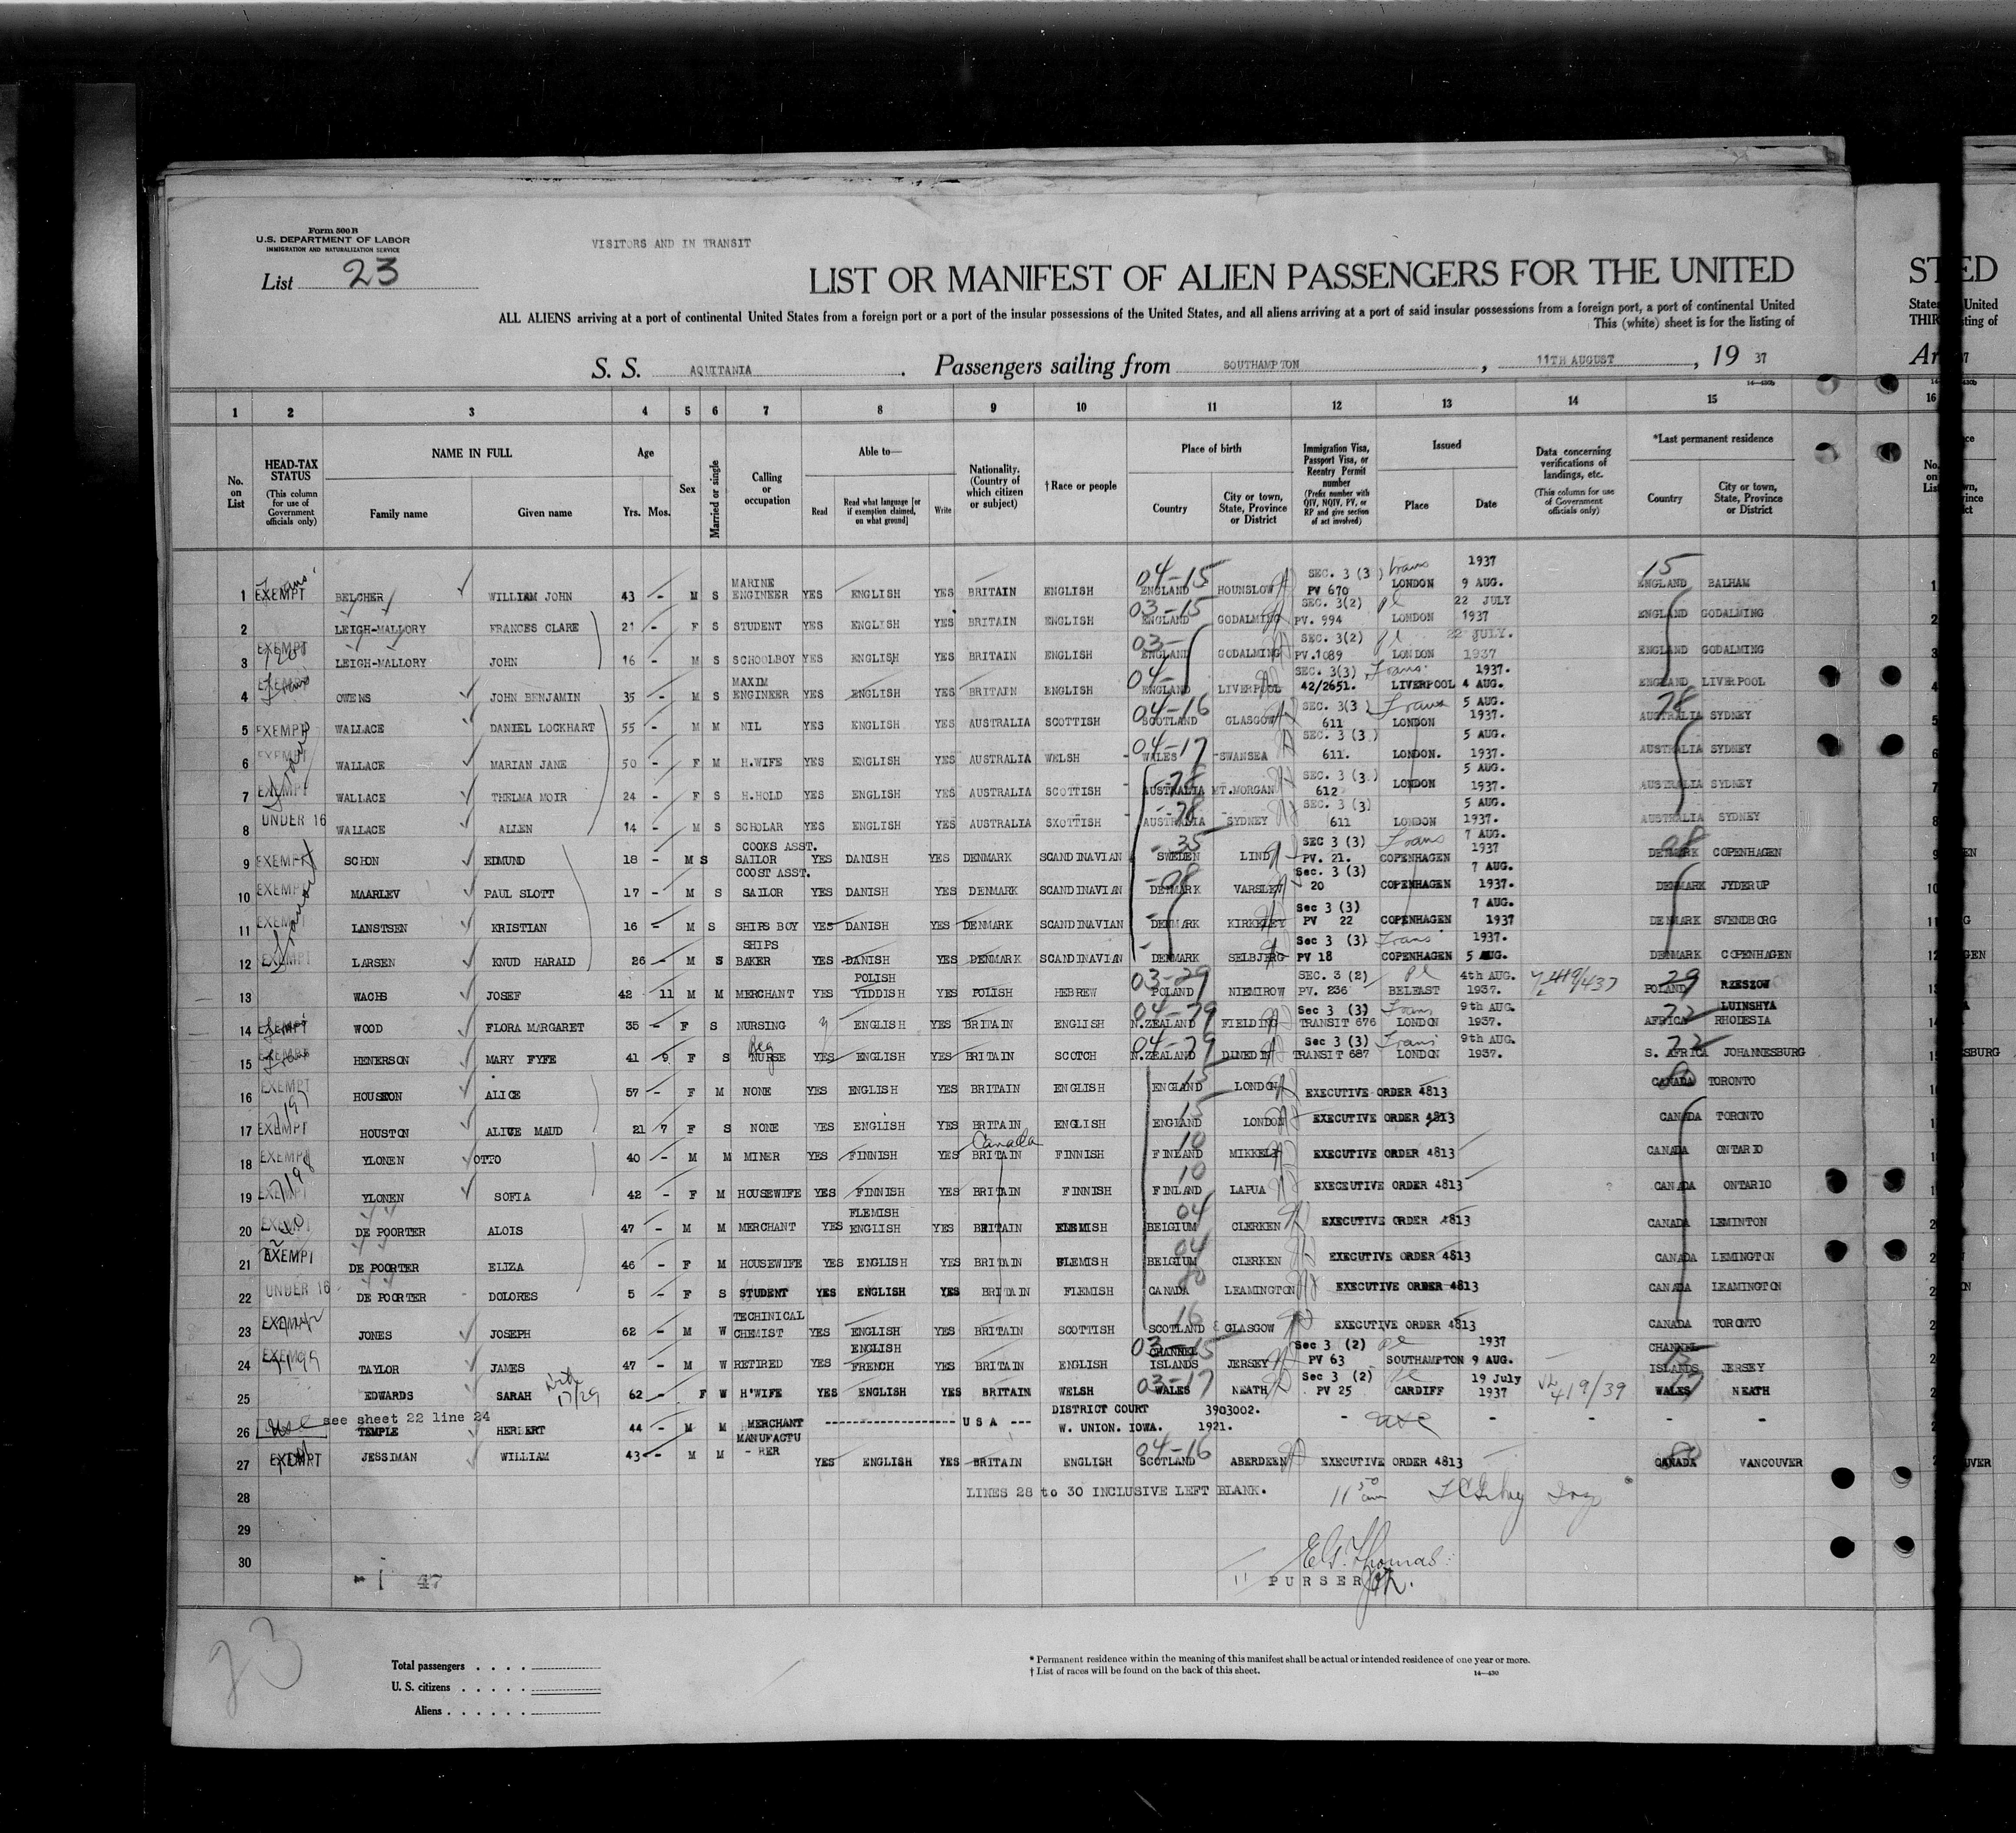 Form 500 B
U.S. DEPARTMENT OF LABOR
IMMIGRATION AND NATURALIZATION SERVICE
VISITORS AND IN TRANSIT
List 23
LIST OR MANIFEST OF ALIEN PASSENGERS FOR THE UNITED
ALL ALIENS arriving at a port of continental United States from a foreign port or a port of the insular possessions of the United States, and all aliens arriving at a port of said insular possessions from a foreign port, a port of continental United
This (white) sheet is for the listing of
S. S. AQUITANIA . Passengers sailing from SOUTHAMPTON , 11TH AUGUST , 19 37
1 2 3 4 5 6 7 8 9 10 11 12 13 14 15
No. on List
HEAD-TAX STATUS (This column for use of Government officials only)
NAME IN FULL Family name Given name
Age Yrs. Mos.
Sex
Married or single
Calling or occupation
Able to— Read Read what language [or if exemption claimed, on what ground] Write
Nationality. (Country of which citizen or subject)
† Race or people
Place of birth Country City or town, State, Province or District
Immigration Visa, Passport Visa, or Reentry Permit number (Prefix number with QIV, NQIV, PV, or RP and give section of act involved)
Issued Place Date
Data concerning verifications of landings, etc. (This column for use of Government officials only)
*Last permanent residence Country City or town, State, Province or District
1 EXEMPT BELCHER WILLIAM JOHN 43 - M S MARINE ENGINEER YES ENGLISH YES BRITAIN ENGLISH 04-15 ENGLAND HOUNSLOW SEC. 3 (3) PV 670 trans LONDON 1937 9 AUG. 15 ENGLAND BALHAM
2 LEIGH-MALLORY FRANCES CLARE 21 - F S STUDENT YES ENGLISH YES BRITAIN ENGLISH 03-15 ENGLAND GODALMING SEC. 3(2) PV. 994 pl LONDON 22 JULY 1937 ENGLAND GODALMING
3 EXEMPT LEIGH-MALLORY JOHN 16 - M S SCHOOLBOY YES ENGLISH YES BRITAIN ENGLISH 03- ENGLAND GODALMING SEC. 3(2) PV.1089 pl LONDON 22 JULY. 1937 ENGLAND GODALMING
4 EXEMPT OWENS JOHN BENJAMIN 35 - M S MAXIM ENGINEER YES ENGLISH YES BRITAIN ENGLISH 04- ENGLAND LIVERPOOL SEC. 3(3) 42/2651. Trans LIVERPOOL 1937. 4 AUG. ENGLAND LIVERPOOL
5 EXEMPT WALLACE DANIEL LOCKHART 55 - M M NIL YES ENGLISH YES AUSTRALIA SCOTTISH 04-16 SCOTLAND GLASGOW SEC. 3(3) 611 Trans LONDON 5 AUG. 1937. 78 AUSTRALIA SYDNEY
6 EXEMPT WALLACE MARIAN JANE 50 - F M H.WIFE YES ENGLISH YES AUSTRALIA WELSH - 04-17 WALES -SWANSEA SEC. 3 (3) 611. LONDON. 5 AUG. 1937. AUSTRALIA SYDNEY
7 EXEMPT WALLACE THELMA MOIR 24 - F S H.HOLD YES ENGLISH YES AUSTRALIA SCOTTISH - -78 AUSTRALIA MT.MORGAN SEC. 3 (3) 612 LONDON 5 AUG. 1937. AUSTRALIA SYDNEY
8 UNDER 16 WALLACE ALLEN 14 - M S SCHOLAR YES ENGLISH YES AUSTRALIA SXOTTISH - -78 AUSTRALIA SYDNEY SEC. 3 (3) 611 LONDON 5 AUG. 1937. AUSTRALIA SYDNEY
9 EXEMPT SCHON EDMUND 18 - M S COOKS ASST. SAILOR YES DANISH YES DENMARK SCANDINAVIAN -35 SWEDEN LIND SEC 3 (3) PV. 21. Trans COPENHAGEN 7 AUG. 1937 08 DENMARK COPENHAGEN
10 EXEMPT MAARLEV PAUL SLOTT 17 - M S COOST ASST. SAILOR YES DANISH YES DENMARK SCANDINAVIAN -08 DENMARK VARSLEV Sec. 3 (3) 20 COPENHAGEN 7 AUG. 1937. DENMARK JYDERUP
11 EXEMPT LANSTSEN KRISTIAN 16 - M S SHIPS BOY YES DANISH YES DENMARK SCANDINAVIAN DENMARK KIRKELEY Sec 3 (3) PV 22 COPENHAGEN 7 AUG. 1937 DENMARK SVENDBORG
12 EXEMPT LARSEN KNUD HARALD 26 - M S SHIPS BAKER YES DANISH YES DENMARK SCANDINAVIAN DENMARK SELBJERG Sec 3 (3) PV 18 Trans COPENHAGEN 1937. 5 AUG. DENMARK COPENHAGEN
13 WACHS JOSEF 42 11 M M MERCHANT YES POLISH YIDDISH YES POLISH HEBREW 03-29 POLAND NIEMIROW SEC. 3 (2) PV. 236 pl BELFAST 4th AUG. 1937. 29 POLAND RZESZOW
14 EXEMPT WOOD FLORA MARGARET 35 - F S NURSING y ENGLISH YES BRITAIN ENGLISH 04-79 N.ZEALAND FIELDING Sec 3 (3) TRANSIT 676 Trans LONDON 9th AUG. 1937. 72 AFRICA LUINSHYA RHODESIA
15 EXEMPT HENERSON MARY FYFE 41 9 F S Reg NURSE YES ENGLISH YES BRITAIN SCOTCH 04-79 N.ZEALAND DINEDIN Sec 3 (3) TRANSIT 687 Trans LONDON 9th AUG. 1937. 72 S. AFRICA JOHANNESBURG
16 EXEMPT HOUSTON ALICE 57 - F M NONE YES ENGLISH YES BRITAIN ENGLISH 15 ENGLAND LONDON EXECUTIVE ORDER 4813 80 CANADA TORONTO
17 EXEMPT HOUSTON ALICE MAUD 21 7 F S NONE YES ENGLISH YES BRITAIN ENGLISH 15 ENGLAND LONDON EXECUTIVE ORDER 4813 CANADA TORONTO
18 EXEMPT YLONEN OTTO 40 - M M MINER YES FINNISH YES Canada BRITAIN FINNISH 10 FINLAND MIKKELI EXECUTIVE ORDER 4813 CANADA ONTARIO
19 EXEMPT YLONEN SOFIA 42 - F M HOUSEWIFE YES FINNISH YES BRITAIN FINNISH 10 FINLAND LAPUA EXECEUTIVE ORDER 4813 CANADA ONTARIO
20 EXEMPT DE POORTER ALOIS 47 - M M MERCHANT YES FLEMISH ENGLISH YES BRITAIN FLEMISH 04 BELGIUM CLERKEN EXECUTIVE ORDER 4813 CANADA LEMINTON
21 EXEMPT DE POORTER ELIZA 46 - F M HOUSEWIFE YES ENGLISH YES BRITAIN FLEMISH 04 BELGIUM CLERKEN EXECUTIVE ORDER 4813 CANADA LEMINGTON
22 UNDER 16 DE POORTER DOLORES 5 - F S STUDENT YES ENGLISH YES BRITAIN FLEMISH 80 CANADA LEAMINGTON EXECUTIVE ORDER 4813 CANADA LEAMINGTON
23 EXEMPT JONES JOSEPH 62 - M W TECHINICAL CHEMIST YES ENGLISH YES BRITAIN SCOTTISH 16 SCOTLAND GLASGOW EXECUTIVE ORDER 4813 CANADA TORONTO
24 EXEMPT TAYLOR JAMES 47 - M W RETIRED YES ENGLISH FRENCH YES BRITAIN ENGLISH 03-15 CHANNEL ISLANDS JERSEY Sec 3 (2) PV 63 pl SOUTHAMPTON 1937 9 AUG. CHANNEL ISLANDS JERSEY
25 EDWARDS SARAH 62 - F W H'WIFE YES ENGLISH YES BRITAIN WELSH 03-17 WALES NEATH Sec 3 (2) PV 25 pl CARDIFF 19 July 1937 VL 419/39 17 WALES NEATH
26 USC see sheet 22 line 24 TEMPLE HERBERT 44 - M M MERCHANT ---- USA --- DISTRICT COURT W. UNION. IOWA. 3903002. 1921. - USC - - - -
27 EXEMPT JESSIMAN WILLIAM 43 - M M MANUFACTU - RER YES ENGLISH YES BRITAIN ENGLISH 04-16 SCOTLAND ABERDEEN EXECUTIVE ORDER 4813 80 CANADA VANCOUVER
28 LINES 28 to 30 INCLUSIVE LEFT BLANK. 11 50 am
29
30
E.G. Thomas
PURSER
47
23
Total passengers
U. S. citizens
Aliens
* Permanent residence within the meaning of this manifest shall be actual or intended residence of one year or more.
† List of races will be found on the back of this sheet.
14—430